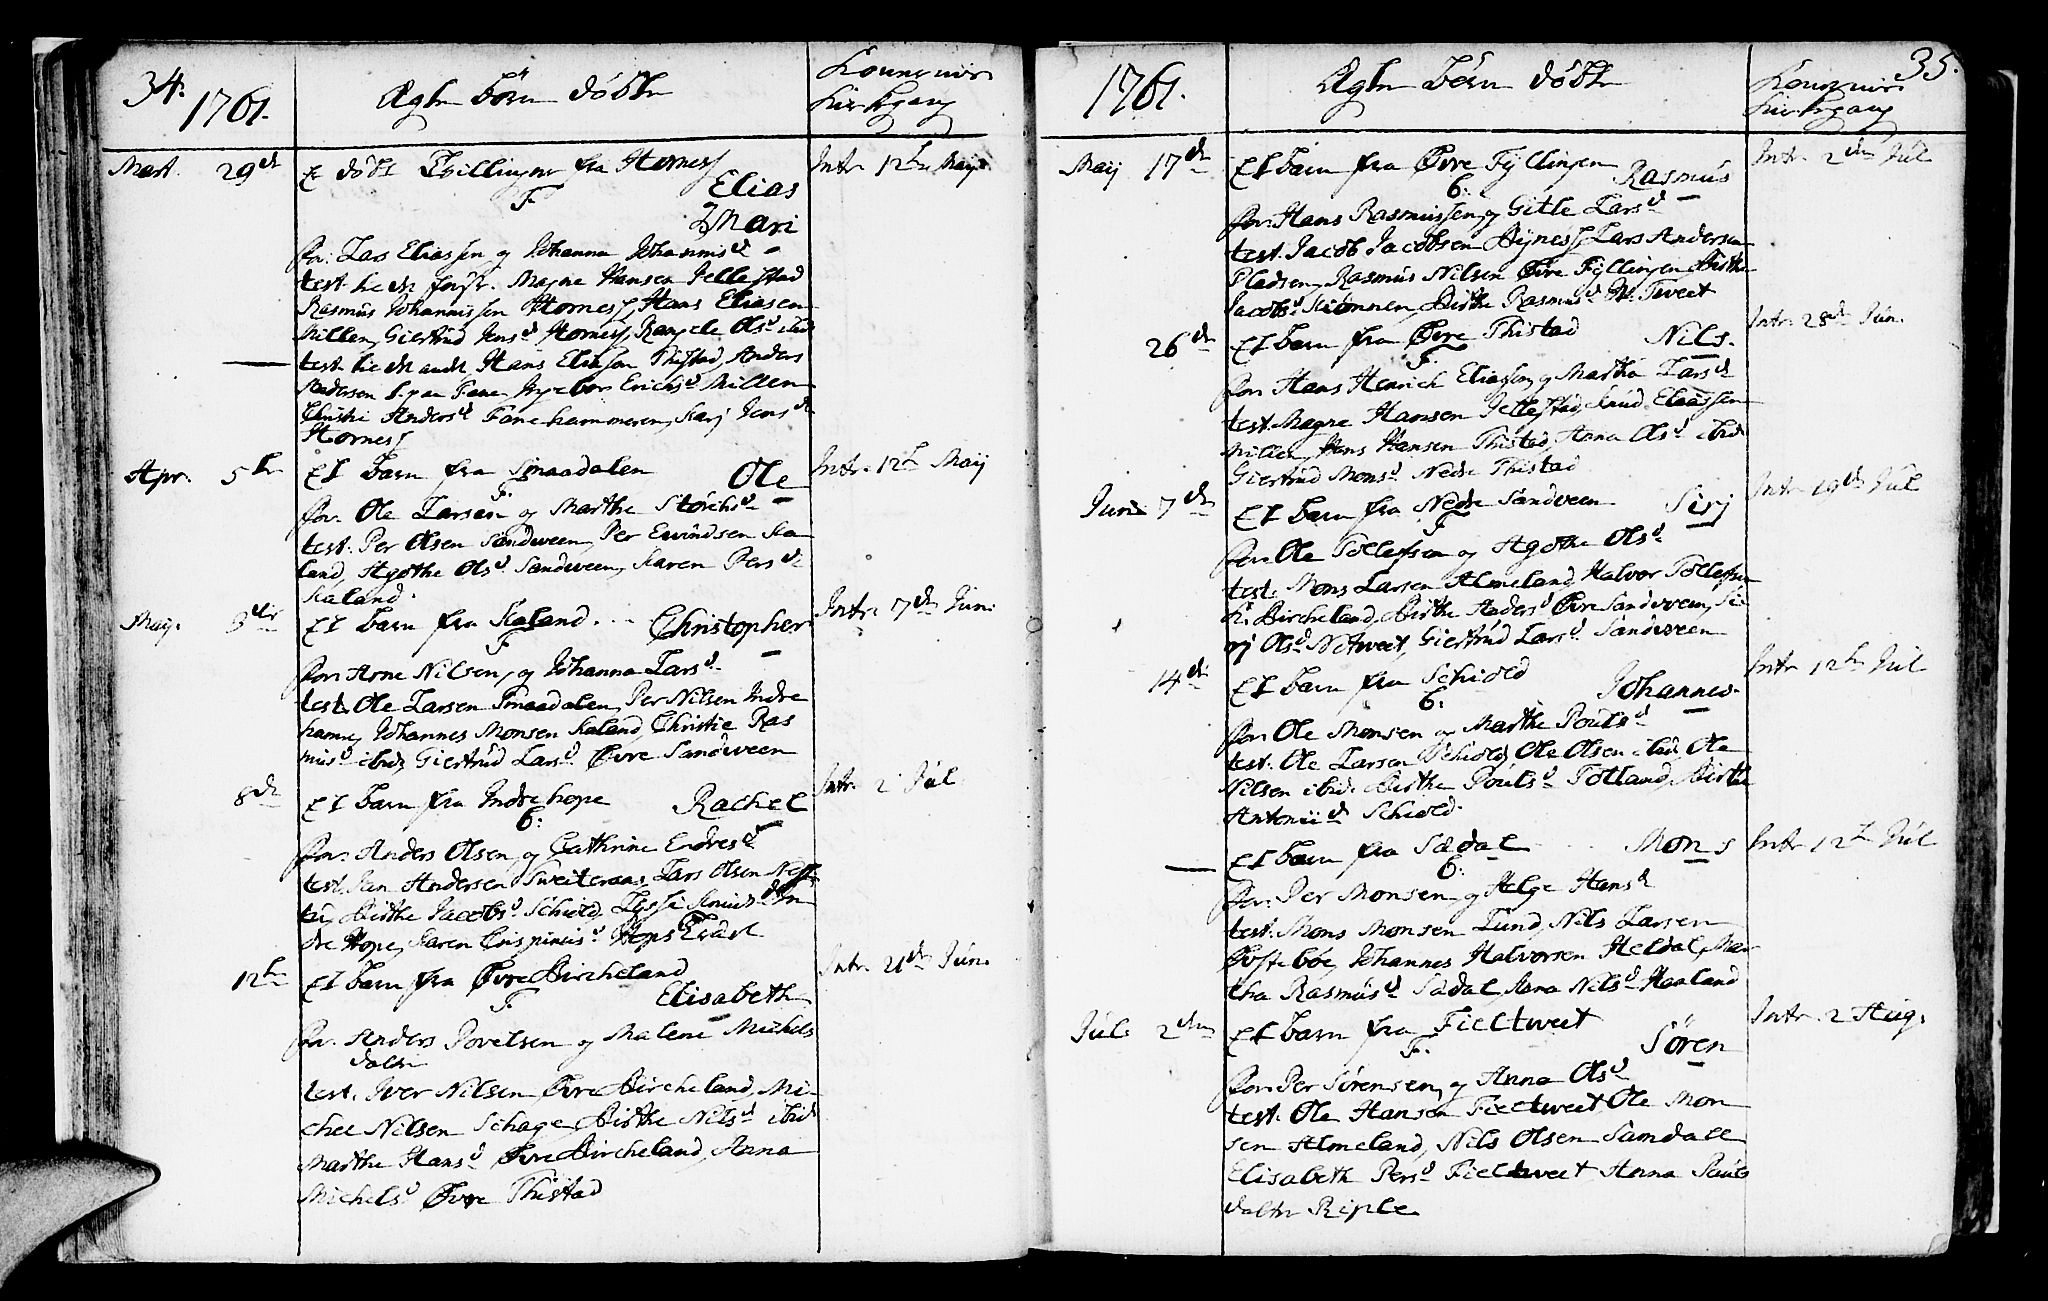 34.
1761.
Ægte børn døbte
Konernis
Kirkgang
Mart. 29de
døbt Tvillinger fra Hornes
Intr. 12te Maji
F.
Elias
2 Mari
for: Lars Eliassen og Johanna Johannisd
test. Magne Hansen Jellestad
Rasmus Johannissen Hornes, Hans Eliasen
Millen, Giertrud Jensd Hornes, Rangele Olsd ibid
test. Hans Eliasen Thistad, Anders
Pedersen Fane, Ingebor Erichsd Millen
Christi Andersd Fanehammeren, Kari Jensd
Hornes
Apr. 5te
Et barn fra Smaadalen
Ole
Intr. 12te Maij
F.
for. Ole Larsen og Marthe Størchsd
test. Per Olsen Sandween, Per Ewindsen Ka
land, Agothe Olsd Sandween, Karen Persd
Kaland.
Maji 3die
Et barn fra Kaland.
Christopher
Intr. 7de Jun:
F
for. Arne Nilsen, og Johanna Larsd
test. Ole Larsen Smaadalen, Per Nilsen Indre
hame, Johannes Monsen Kaland, Christie Ras
musd ibid, Giertrud Larsd Øvre Sandween
8de
Et barn fra Indrehope
Rachel
Intr. 2 Jul
6:
for. Anders Olsen, og Cathrine Endresd
test. Jan Andersen Tweiteraas, Lars Olsen Nest
tu, Birthe Jacobsd Schiold, Lyssi Knudsd In
dre Hope, Karen Crispinusd
12te
Et barn fra Øvre Bircheland
Intr. 21de Jun.
F.
Elisabeth
for. Anders Povelsen og Malene Michels
dotter
test. Iver Nilsen Øvre Bircheland, Mi
chel Nilsen Schage, Birthe Nilsd ibid
Marthe Hansd Øvre Bircheland, Anna
Michelsd Øvre Thistad
35.
1761.
Ægte Børn døbte
Konernis
Kirkgang
Maij 17de
Et barn fra Øvre Fyllingen
Rasmus
Intr. 2den Jul
6.
for. Hans Rasmussen, og Gitle Larsd
test. Jacob Jacobsen Bynes, Lars Andersen
Pladsen, Rasmus Nilsen Øvre Fyllingen, Birthe
Jacobsd, Birthe Rasmusd Tweet
26de
Et barn fra Øvre Thistad
Nils.
Intr. 28de Jun.
F.
for. Hans Henrich Eliassen, og Martha Larsd
test. Magne Hansen Jellestad, Knud Eliassen
Millen, Jens Hansen Thistad, Anna Olsd ibid
Giertrud Monsd Nedre Thistad
Juni 7de
Et barn fra Nedre Sandween
Sirj
Intr. 19de Jul
F
for. Ole Tollefsen og Agothe Olsd
test. Mons Larsen Almeland, Halvor Tollefsen
Bircheland, Birthe Andersd Øvre Sandween, Si
rj Olsd Netweet, Giertrud Larsd Sandween
14de
Et barn fra Schiold
Johannes.
Intr 12te Jul
6:
for. Ole Monsen og Marthe Poulsd
test. Ole Larsen Schiold, Ole Olsen ibid, Ole
Nilsen ibid. Birthe Poulsd Totland, Birthe
Antoniid Schiold.
Et barn fra Sædal
Mons
Intr 12te Jul
6.
for. Per Monsen, og Helge Hansd
test. Mons Monsen Lund, Nils Larsen
Johannes Halvorsen Heldal, Mar
tha Rasmusd Sædal, Anna Nilsd Haaland
Jul. 2den
Et barn fra Fieltweit
Søren
Intr. 2 Aug.
F.
for. Per Sørensen, og Anna Olsd
test. Ole Hansen Fieltweet Ole Mon
sen Almeland, Nils Olsen Samdall
Elisabeth Persd Fieltweet Anna Pauls
dotter Riple